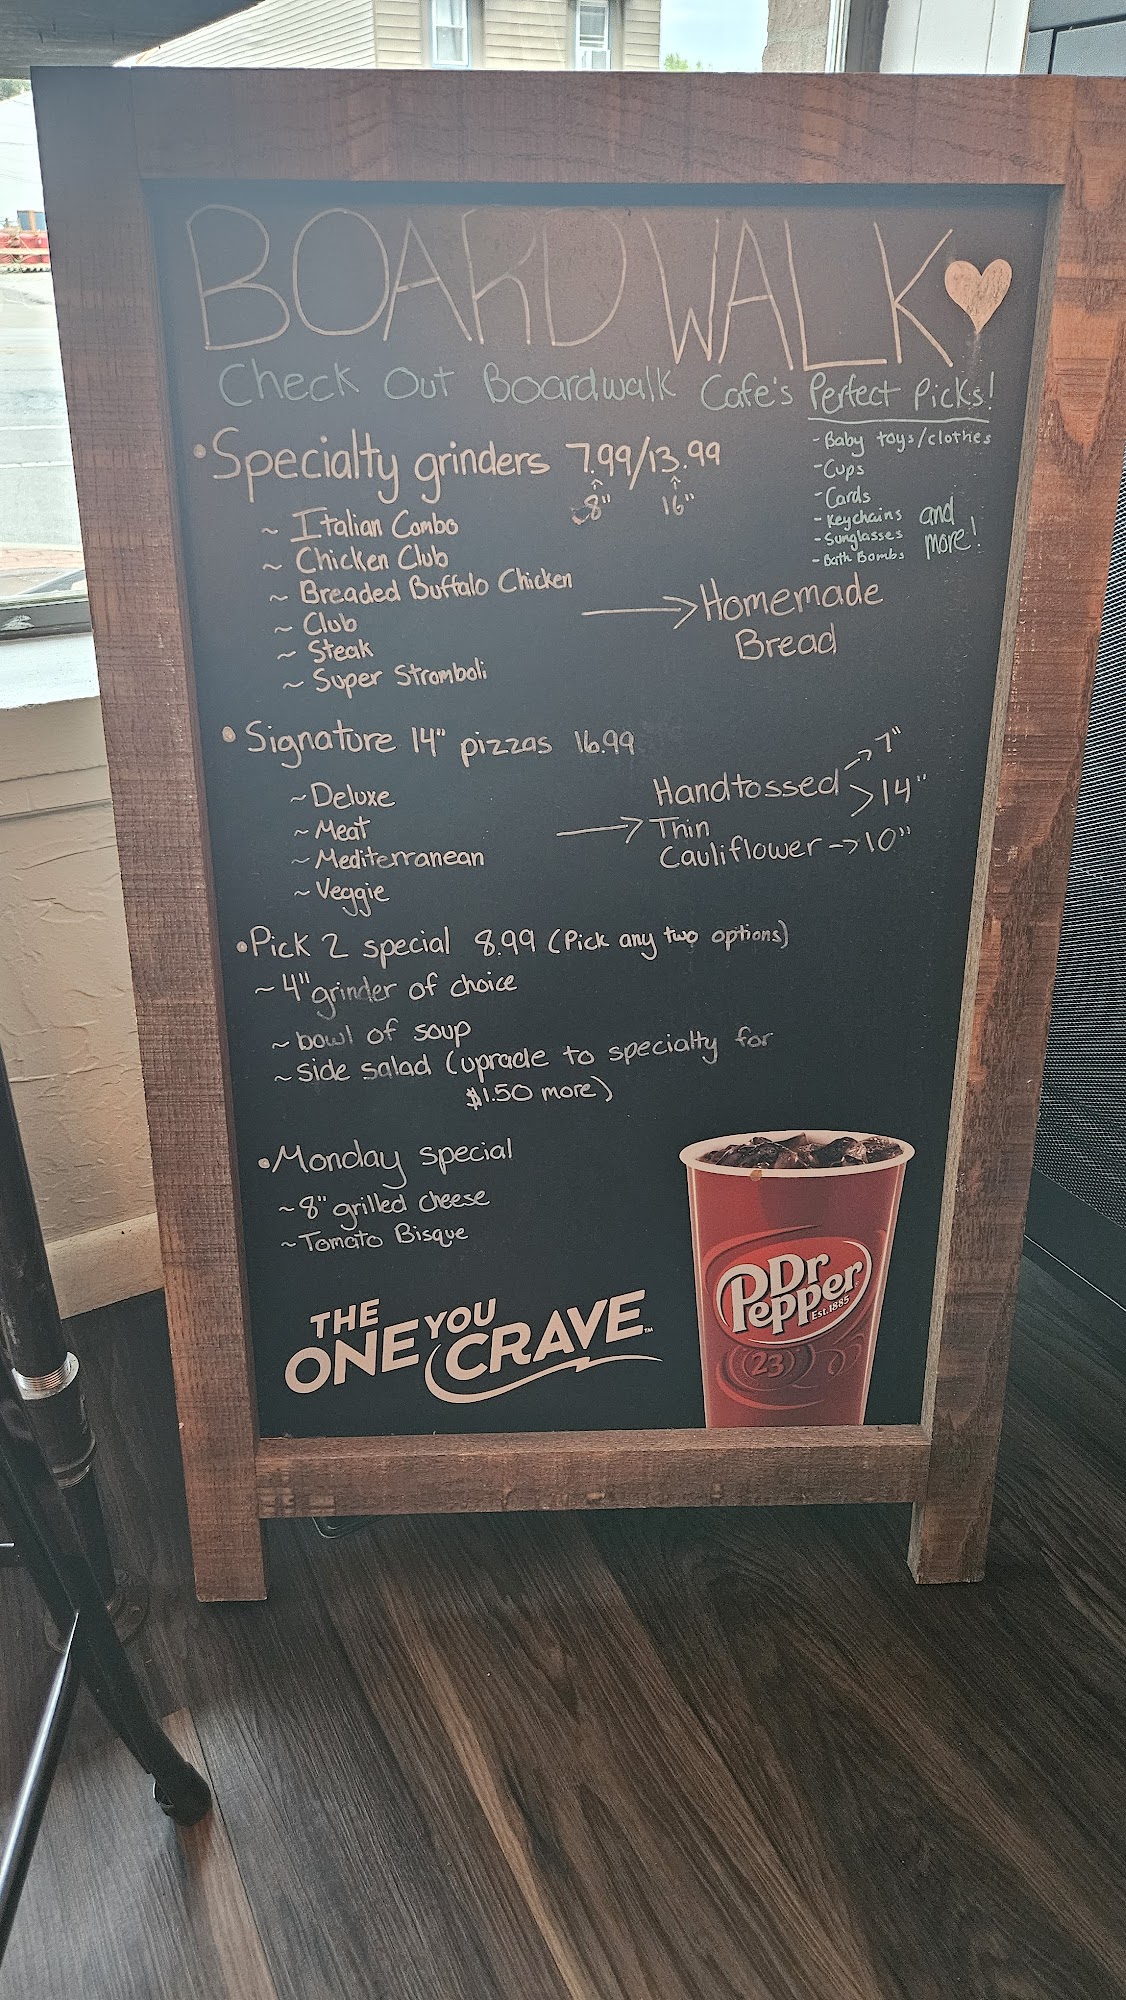 BOARDWALK
Check Out Boardwalk Cafe's Perfect Picks!
- Baby toys/clothes
- Cups
- Cards
- Keychains
- Sunglasses
- Bath Bombs
and
more!
• Specialty grinders 7.99/13.99
8" 16"
~ Italian Combo
~ Chicken Club
~ Breaded Buffalo Chicken
~ Club
~ Steak
~ Super Stromboli
→ Homemade
Bread
• Signature 14" pizzas 16.99
~ Deluxe
~ Meat
~ Mediterranean
~ Veggie
Handtossed → 7"
> 14"
→ Thin
Cauliflower -> 10"
• Pick 2 special 8.99 (Pick any two options)
~ 4" grinder of choice
~ bowl of soup
~ side salad (upracle to specialty for
$1.50 more)
• Monday special
~ 8" grilled cheese
~ Tomato Bisque
THE
ONE YOU
CRAVE™
Dr
Pepper
Est. 1885
23